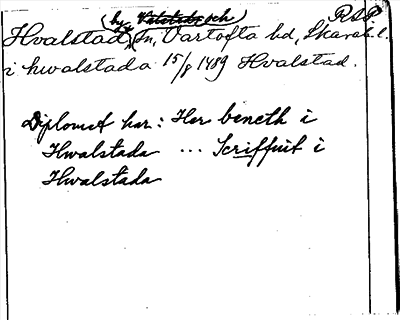 (by, och) RSP
Hvalstad, Tn, Vartofta hd, Skarab. l.
i hwalstada 15/8 1489 Hvalstad.
Diplomet har: Her beneth i
Hwalstada ... Scriffuit i
Hwalstada